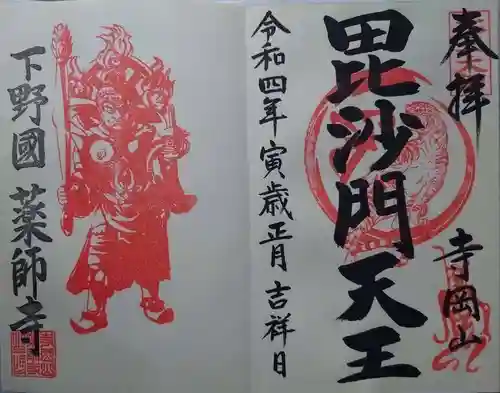 奉拝
毘沙門天王
寺岡山
令和四年寅歳正月吉祥日
下野國 薬師寺